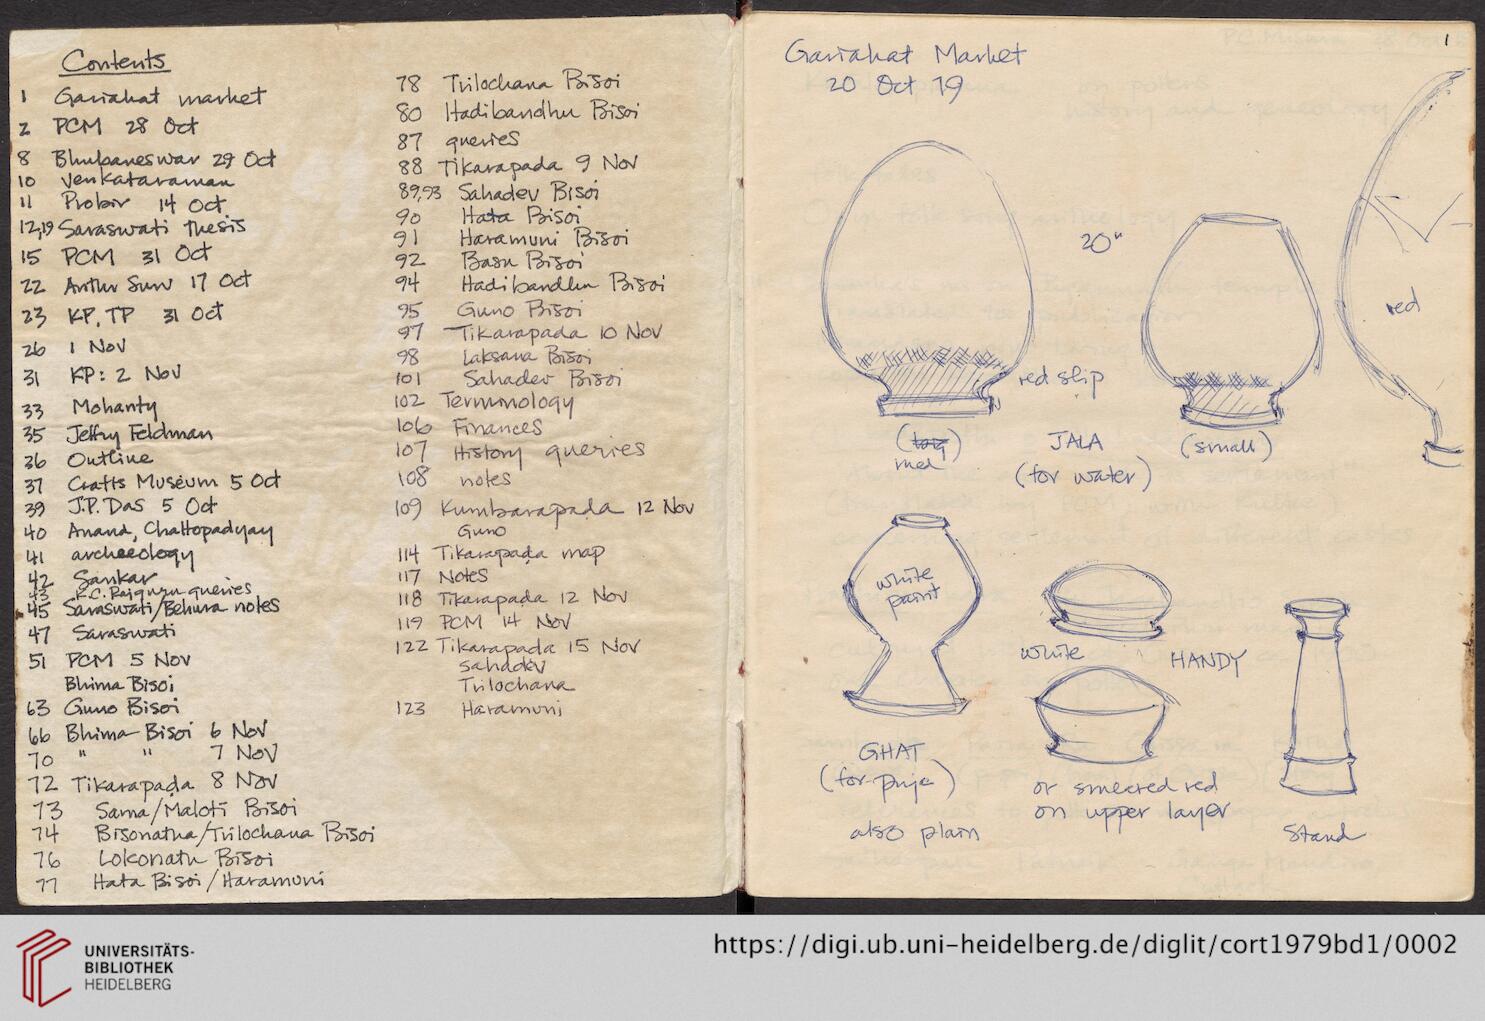 Contents
1 Gariahat market
2 PCM 28 Oct
8 Bhubaneswar 29 Oct
10 Venkataraman
11 Probir 14 Oct
12,19 Saraswati thesis
15 PCM 31 Oct
22 17 Oct
23 KP, TP 31 Oct
26 1 Nov
31 KP: 2 Nov
33 Mohanty
35 Jeffry Feldman
36 Outline
37 Crafts Museum 5 Oct
39 J.P. Das 5 Oct
40 Anand, Chattopadyay
41 archaeology
42 Sankar
43 K.C. Rajguru queries
45 Saraswati/Behura notes
47 Saraswati
51 PCM 5 Nov
Bhima Bisoi
63 Guno Bisoi
66 Bhima Bisoi 6 Nov
70 " " 7 Nov
72 Tikarapaḍa 8 Nov
73 Sama/Maloti Bisoi
74 Bisonatha/Trilochana Bisoi
76 Lokonath Bisoi
77 Hata Bisoi/Haramoni
78 Trilochana Bisoi
80 Hadibandhu Bisoi
87 queries
88 Tikarapada 9 Nov
89,93 Sahadev Bisoi
90 Hata Bisoi
91 Haramuni Bisoi
92 Basu Bisoi
94 Hadibandhu Bisoi
95 Guno Bisoi
97 Tikarapada 10 Nov
98 Laksana Bisoi
101 Sahadev Bisoi
102 Terminology
106 Finances
107 History queries
108 notes
109 Kumbarapaḍa 12 Nov
Guno
114 Tikarapaḍa map
117 Notes
118 Tikarapaḍa 12 Nov
119 PCM 14 Nov
122 Tikarapada 15 Nov
Sahadev
Trilochana
123 Haramuni
1
Gariahat Market
20 Oct 79
20"
red
red slip
(med)
JALA
(for water)
(small)
white
paint
white
HANDY
GHAT
(for puja)
also plain
or smeared red
on upper layer
Stand
UNIVERSITÄTS-
BIBLIOTHEK
HEIDELBERG
https://digi.ub.uni-heidelberg.de/diglit/cort1979bd1/0002